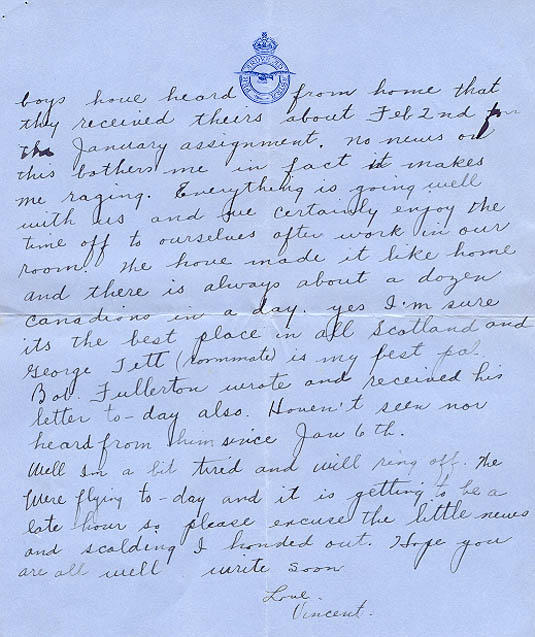 boys have heard from home that
they received theirs about Feb 2nd for
the January assignment. no news on
this bothers me in fact it makes
me raging. Everything is going well
with us and we certainly enjoy the
time off to ourselves after work in our
room. We have made it like home
and there is always about a dozen
Canadians in a day. yes I'm sure
its the best place in all Scotland and
George Tett (roommate) is my best pal.
Bob. Fullerton wrote and received his
letter to-day also. Haven't seen nor
heard from him since Jan 6th.
Well I'm a bit tired and will ring off. We
were flying to-day and it is getting to be a
late hour so please excuse the little news
and scolding I handed out. Hope you
are all well write soon
Love.
Vincent.